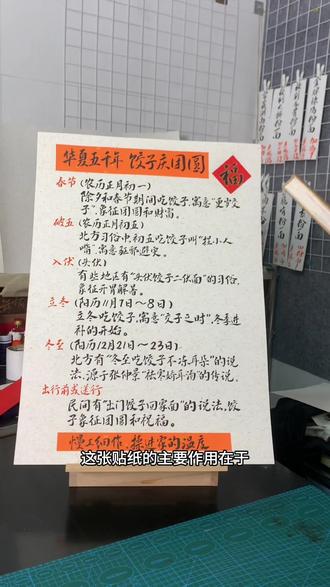 华夏五千年 饺子庆团圆
福
春节(农历正月初一)
除夕和春节期间吃饺子,寓意"更岁交子",象征团圆和财富。
破五(农历正月初五)
北方习俗中初五吃饺子叫"捏小人嘴",寓意驱邪避灾。
入伏(头伏)
有些地区有"头伏饺子二伏面"的习俗,象征开胃解暑。
立冬(阳历11月7~8日)
立冬吃饺子,寓意"交子之时",冬季进补的开始。
冬至(阳历12月21~23日)
北方有"冬至吃饺子不冻耳朵"的说法,源于张仲景"祛寒娇耳汤"的传说,
出行前或送行
民间有"出门饺子回家面"的说法,饺子象征团圆和祝福。
慢工细作,接进家的温度
这张贴纸的主要作用在于